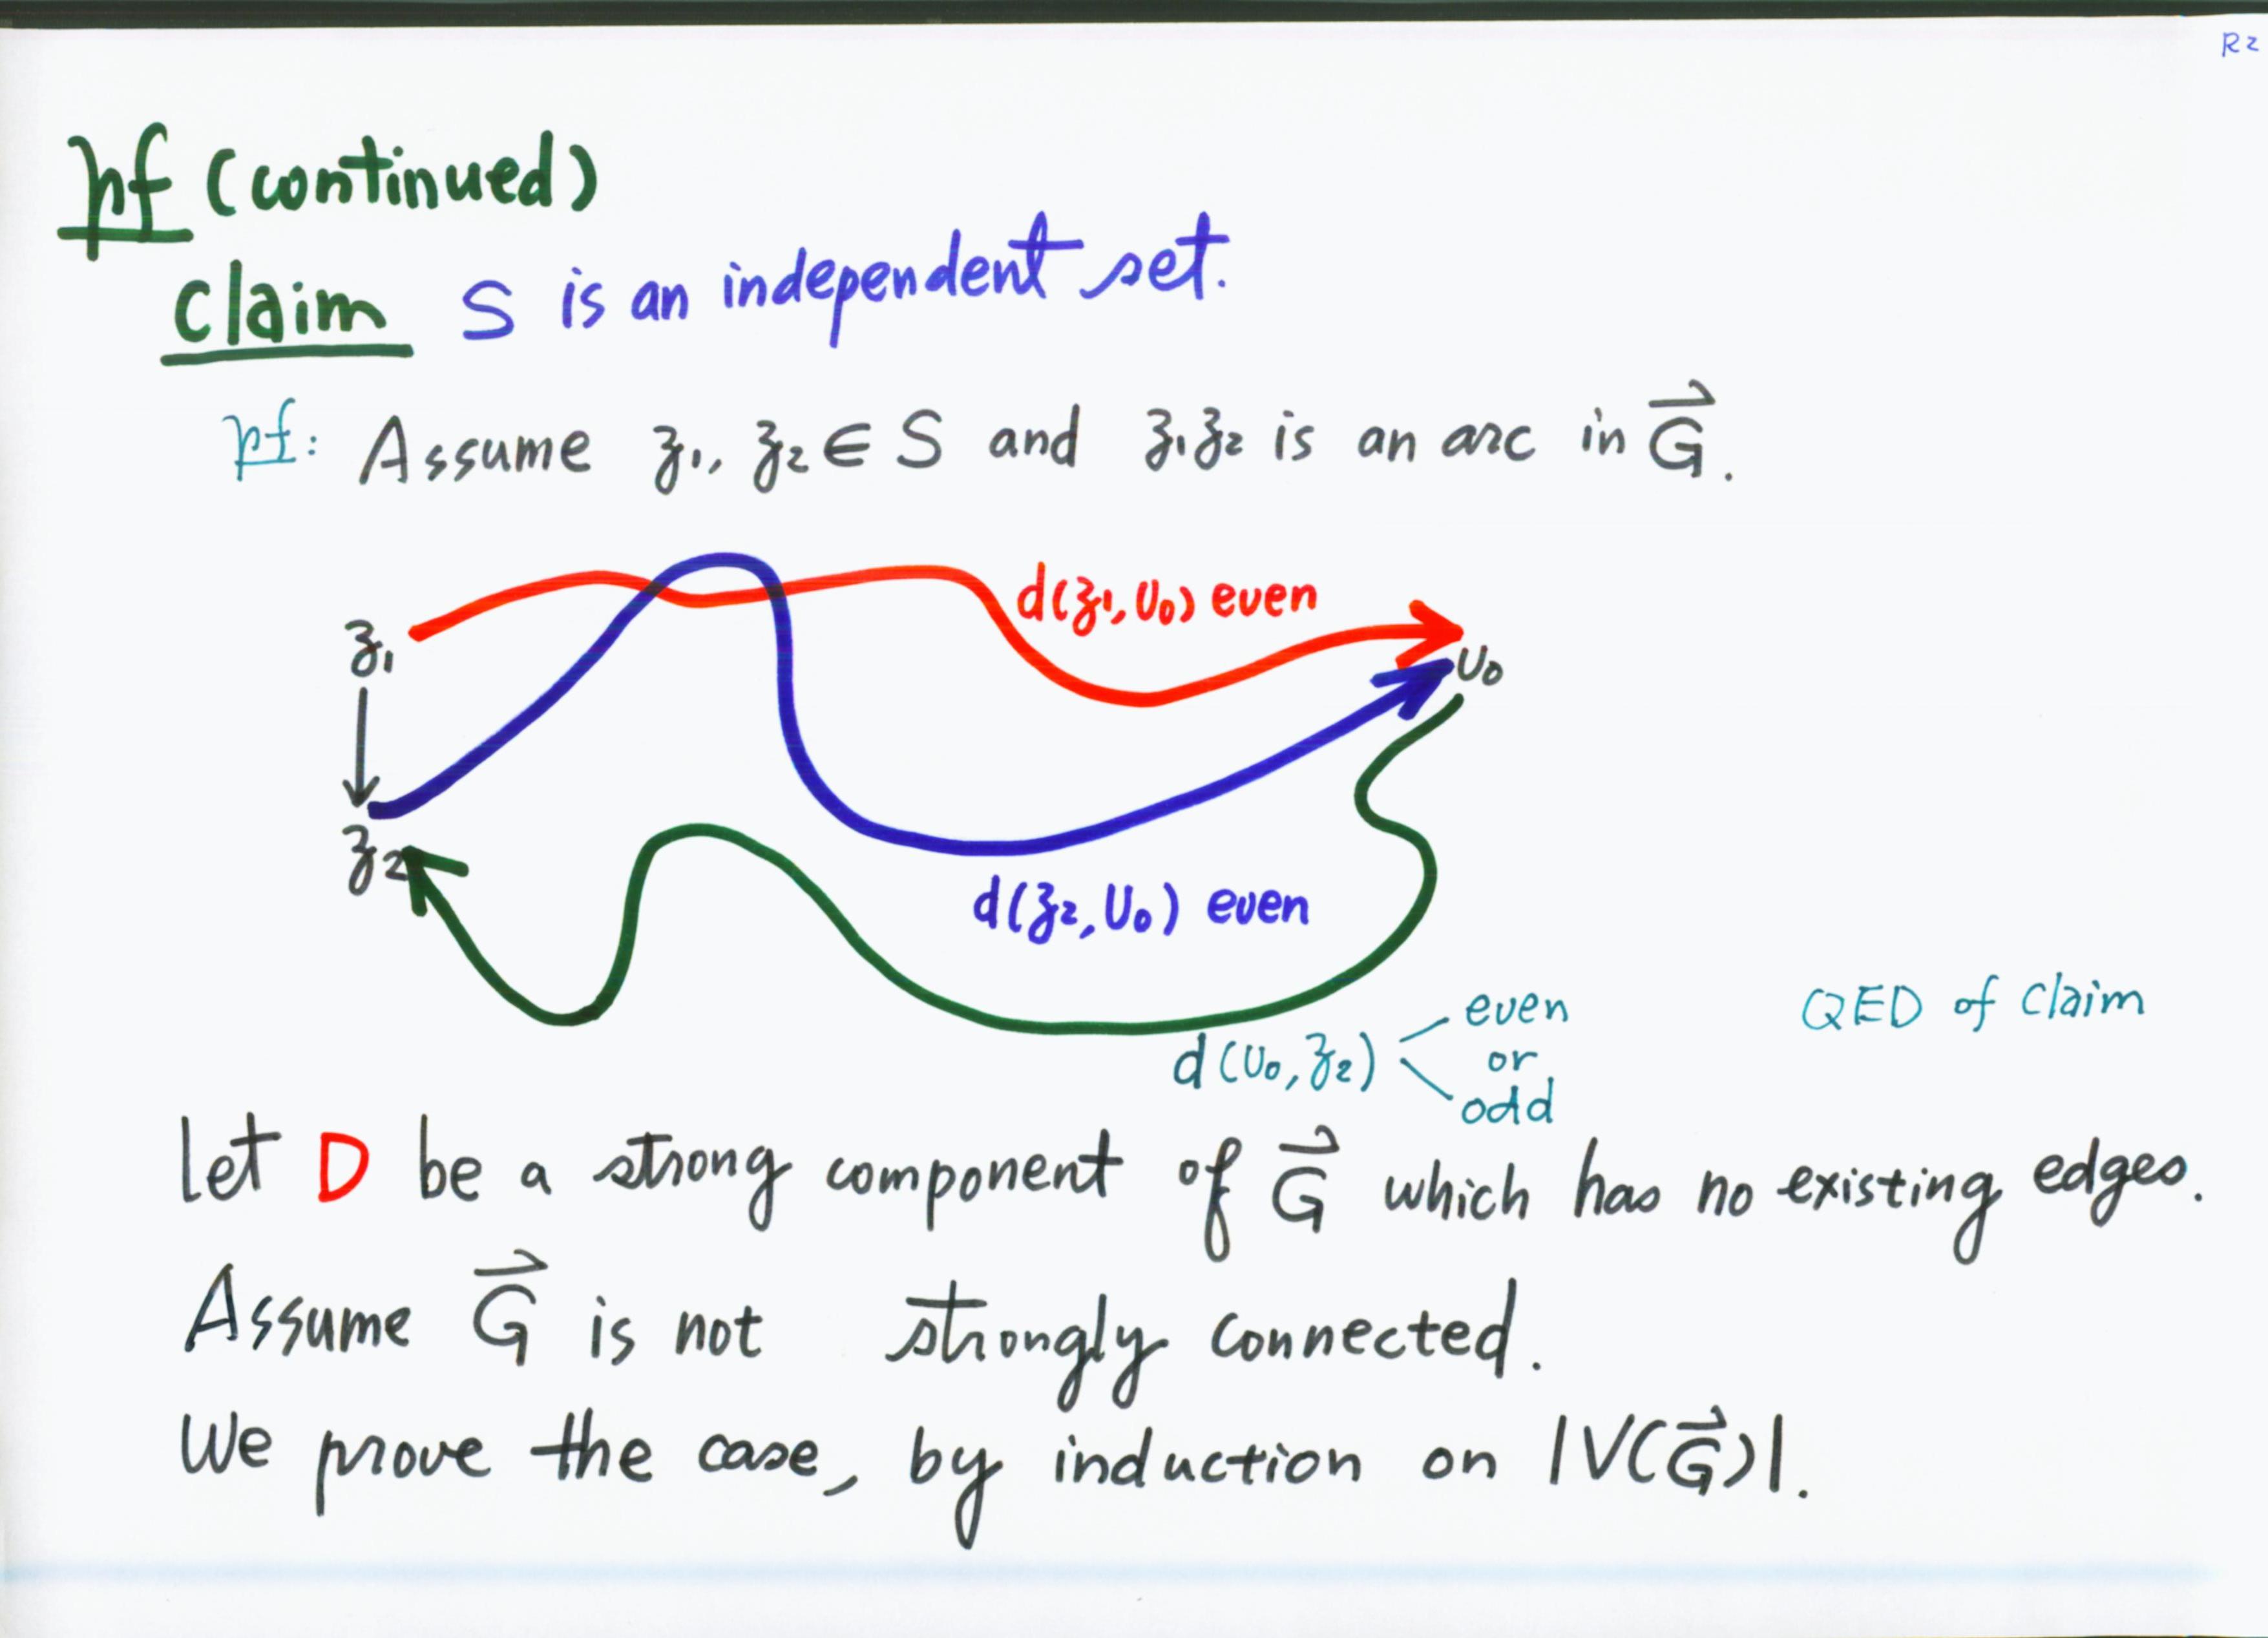 R2
pf (continued)
Claim S is an independent set.
pf: Assume z₁, z₂ ∈ S and z₁z₂ is an arc in G⃗.
d(z₁, u₀) even
z₁
u₀
z₂
d(z₂, u₀) even
d(u₀, z₂) even or odd
QED of claim
Let D be a strong component of G⃗ which has no existing edges.
Assume G⃗ is not strongly connected.
We prove the case, by induction on |V(G⃗)|.